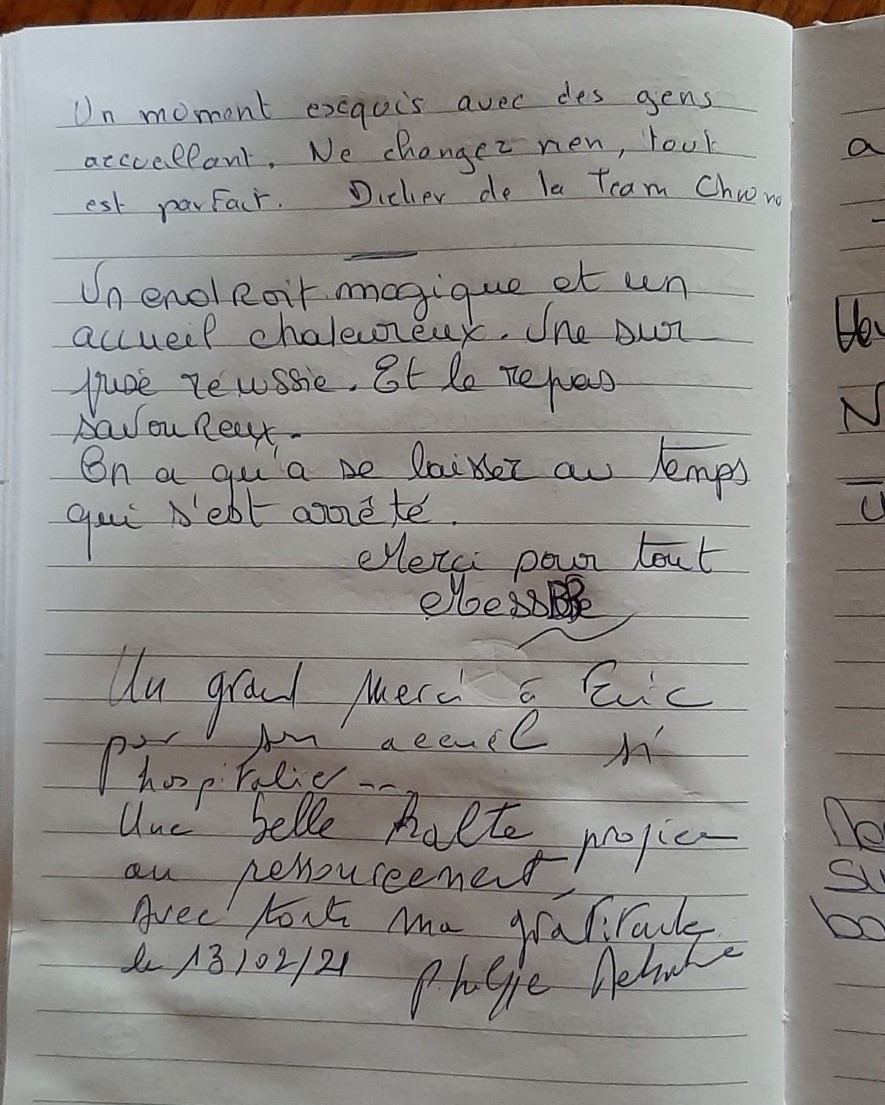 Un moment excquis avec des gens
accuellant. Ne changez rien, tout
est parfait. Didier de la Team
Un endroit magique et un
accueil chaleureux. Une sur
prise réussie. Et le repas
savoureux.
On a qu'à se laisser au temps
qui s'est arrêté.
Merci pour tout
Un grand merci à Eric
pour son accueil si
hospitalier ---
Une belle halte propice
au ressourcement,
Avec toute ma gratitude
le 13/02/21 Philippe
a
N
su